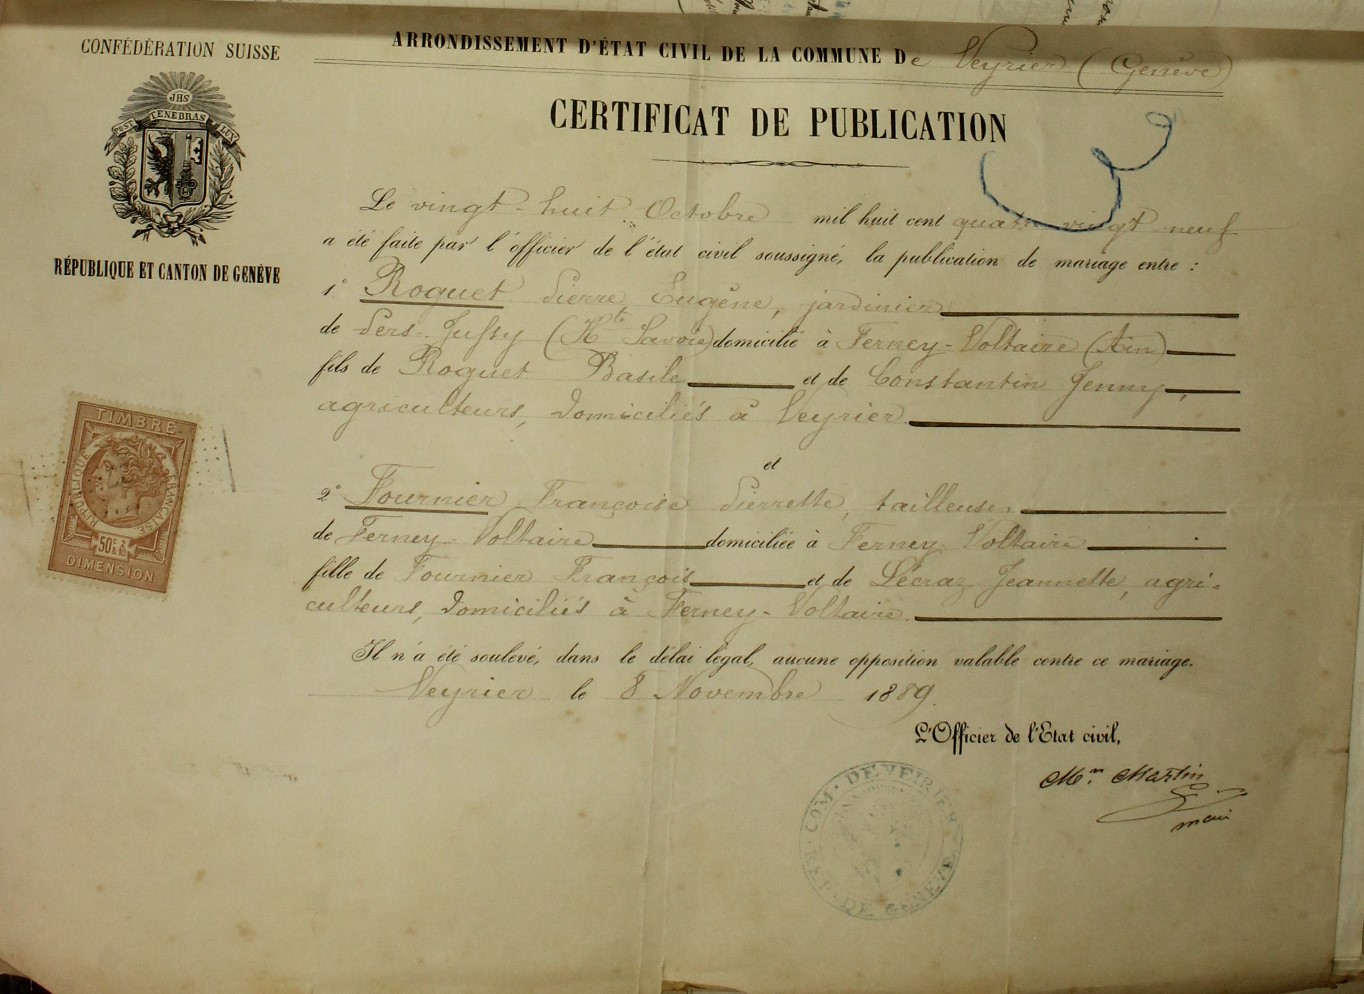 CONFÉDÉRATION SUISSE
JHS
POST TENEBRAS LUX
RÉPUBLIQUE ET CANTON DE GENÈVE
ARRONDISSEMENT D'ÉTAT CIVIL DE LA COMMUNE De Veyrier (Genève)
CERTIFICAT DE PUBLICATION
Le vingt-huit Octobre mil huit cent quatre vingt neuf
a été faite par l'officier de l'état civil soussigné, la publication de mariage entre :
1° Roguet Pierre Eugène, jardinier
de Pers-Jussy (Hte Savoie) domicilié à Ferney-Voltaire (Ain)
fils de Roguet Basile et de Constantin Jenny,
agriculteurs, domiciliés à Veyrier
et
2° Fournier Françoise Pierrette, tailleuse
de Ferney-Voltaire domiciliée à Ferney-Voltaire
fille de Fournier François et de Lécraz Jeannette, agri-
culteurs, domiciliés à Ferney-Voltaire
Il n'a été soulevé, dans le délai légal, aucune opposition valable contre ce mariage.
Veyrier le 8 Novembre 1889.
L'Officier de l'Etat civil,
Mn. Martin
maire
COM. DE VEIRIER
REP. DE GENÈVE
TIMBRE
RÉPUBLIQUE FRANÇAISE
50c 2/10
DIMENSION